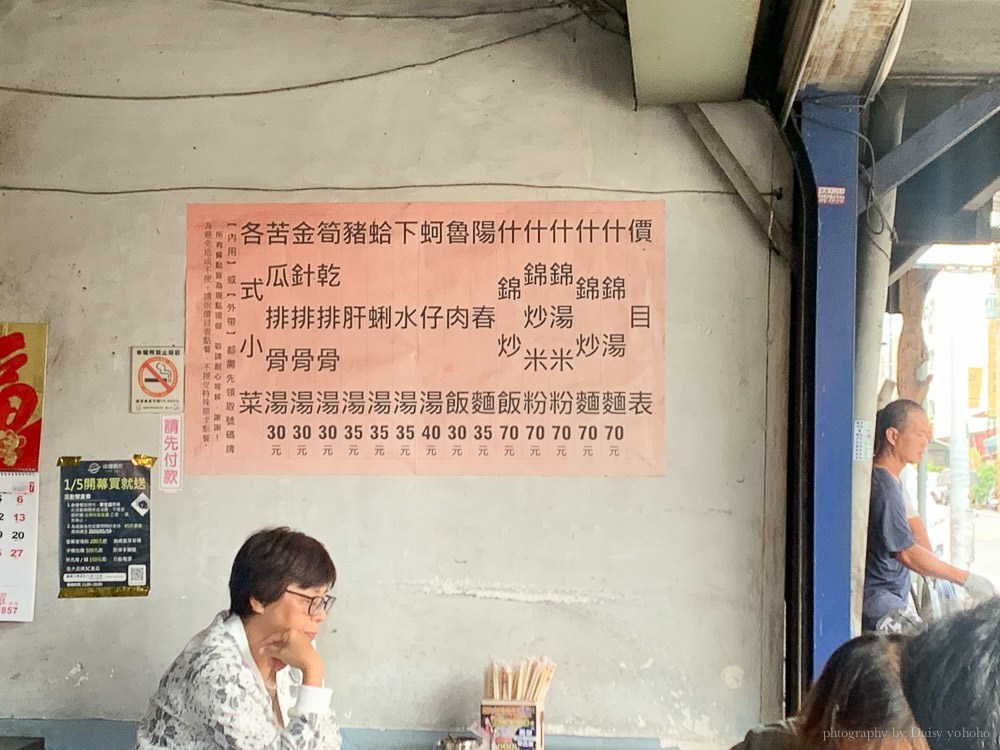 價目表
什錦湯麵 70元
什錦炒麵 70元
什錦湯米粉 70元
什錦炒米粉 70元
什錦炒飯 70元
陽春麵 35元
魯肉飯 30元
蚵仔湯 40元
下水湯 35元
蛤蜊湯 35元
豬肝湯 35元
筍乾排骨湯 30元
金針排骨湯 30元
苦瓜排骨湯 30元
各式小菜
【內用】或【外帶】都需先領取號碼牌
所有餐點皆為現點現做 敬請耐心等候 謝謝!
請先付款
1/5開幕買就送
6
13
20
27
857
photography by Daisy yohoho